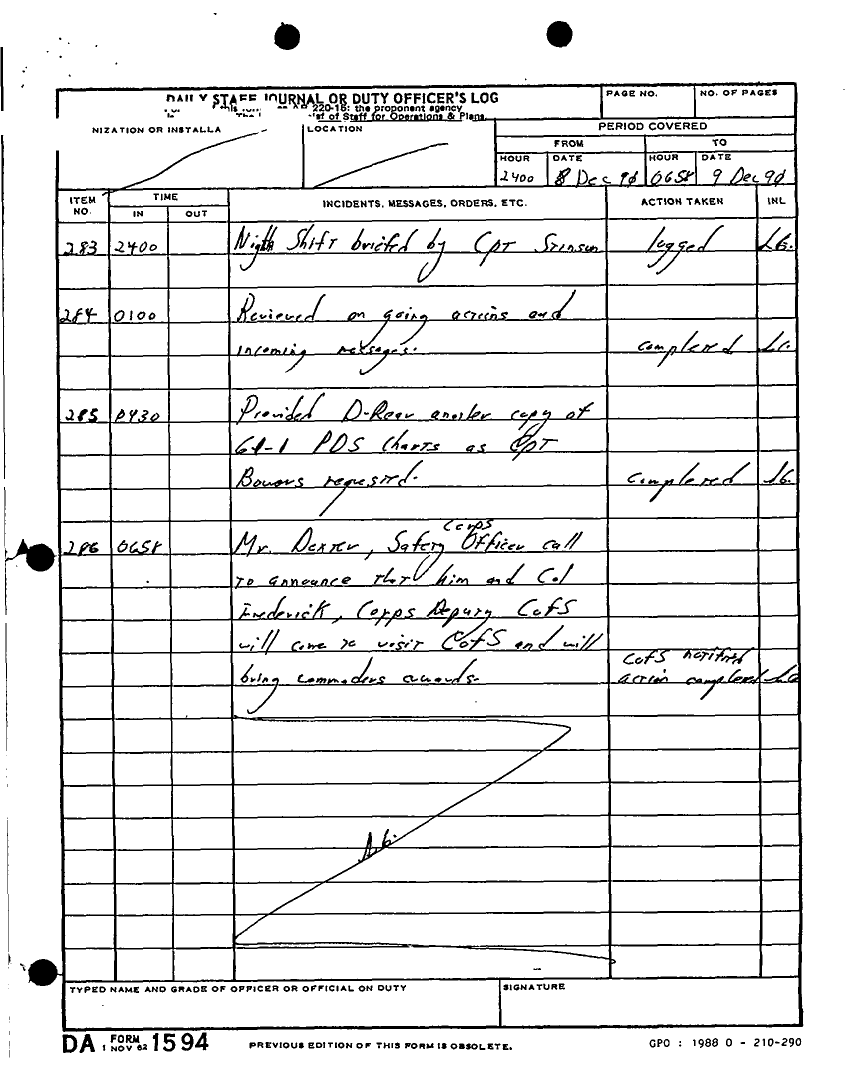 DAILY STAFF JOURNAL OR DUTY OFFICER'S LOG
this form 220-15; the proponent agency
of Staff for Operations & Plans.
PAGE NO.
NO. OF PAGES
NIZATION OR INSTALLA
LOCATION
PERIOD COVERED
FROM
TO
HOUR
DATE
HOUR
DATE
2400
8 Dec 90
0658
9 Dec 90
ITEM NO.
TIME
IN
OUT
INCIDENTS, MESSAGES, ORDERS, ETC.
ACTION TAKEN
INL
283 2400 Nigth Shift briefed by Cpt Stinson logged LG.
284 0100 Reviewed on going actions and
incoming messages. completed LG.
285 0430 Provided D-Rear another copy of
G1-1 PDS Charts as Cpt
Bowers requested. completed LG.
Corps
286 0658 Mr. Dexter, Safety Officer call
to announce that him and Col
Frederick, Corps Deputy CofS
will come to visit CofS and will
CofS notified
bring commaders awards. action completed LG
LG.
TYPED NAME AND GRADE OF OFFICER OR OFFICIAL ON DUTY
SIGNATURE
DA FORM 1 NOV 62 1594
PREVIOUS EDITION OF THIS FORM IS OBSOLETE.
GPO : 1988 O - 210-290